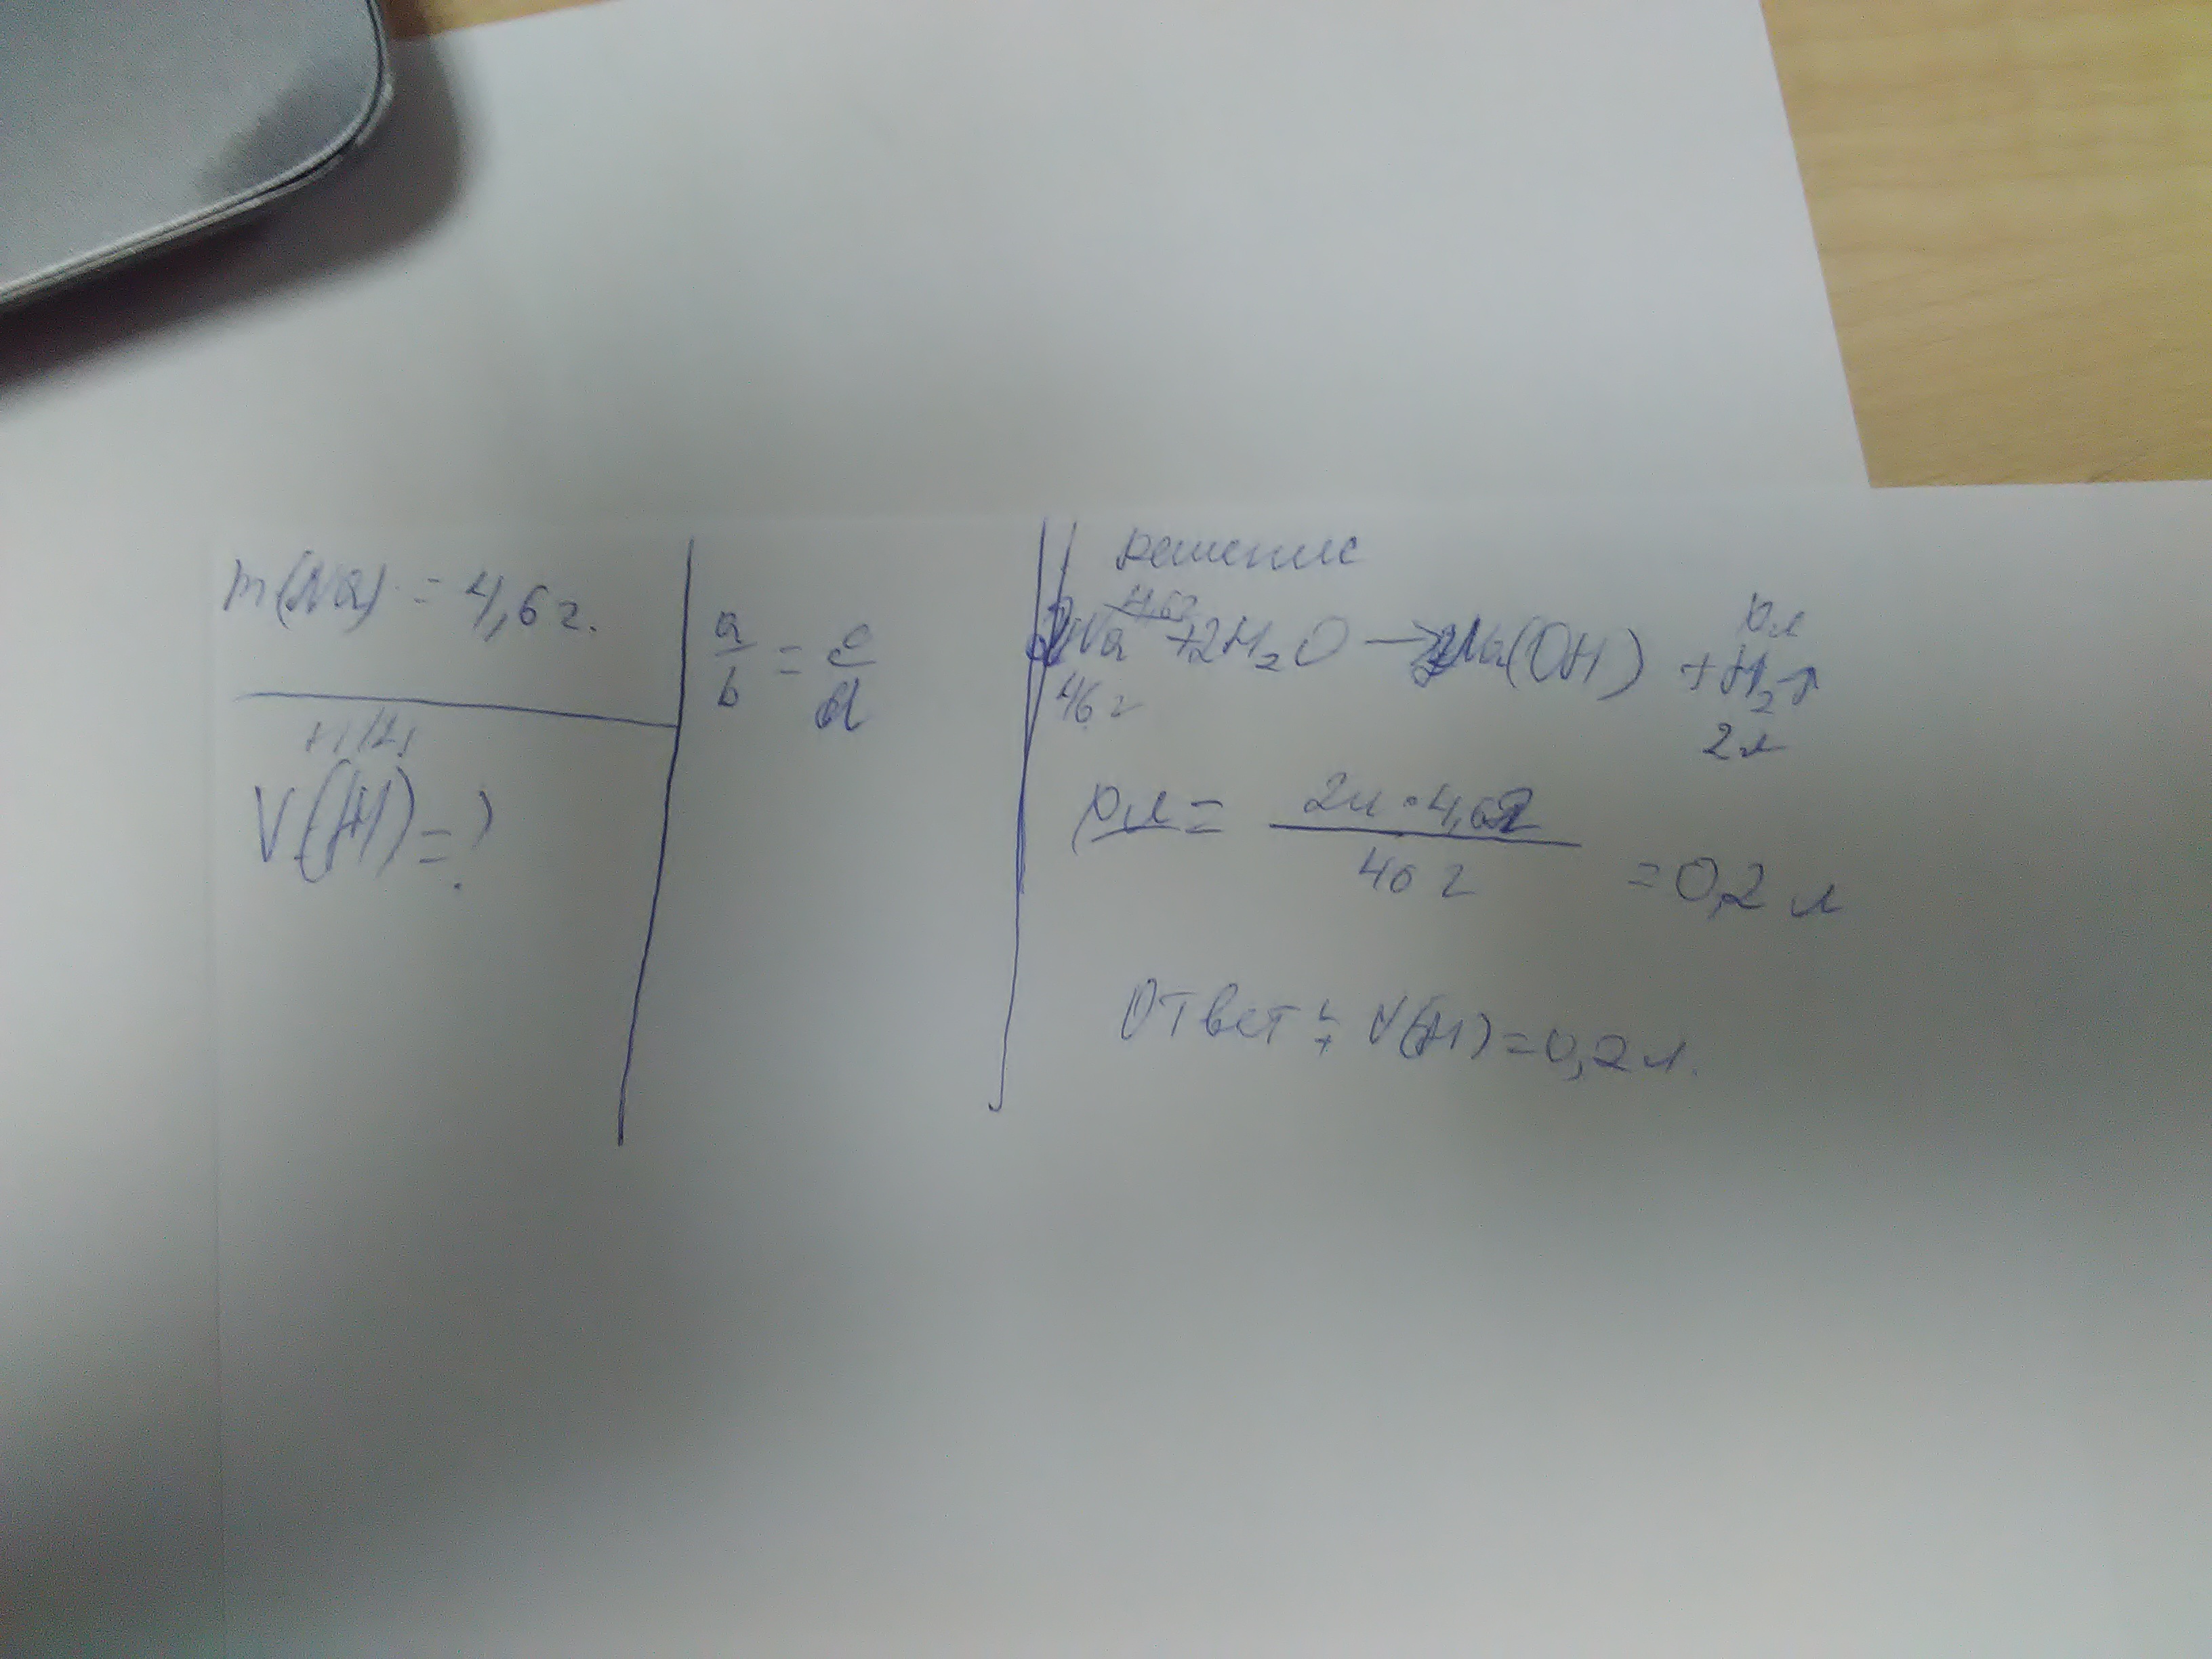 m(Na) = 4,6 г.
V(H) = ?
a/b = c/d
решение
4,6г
2Na + 2H₂O → 2Na(OH) + H₂↑
46 г
2л
= 2л · 4,6г / 46 г = 0,2 л
Ответ: V(H) = 0,2 л.